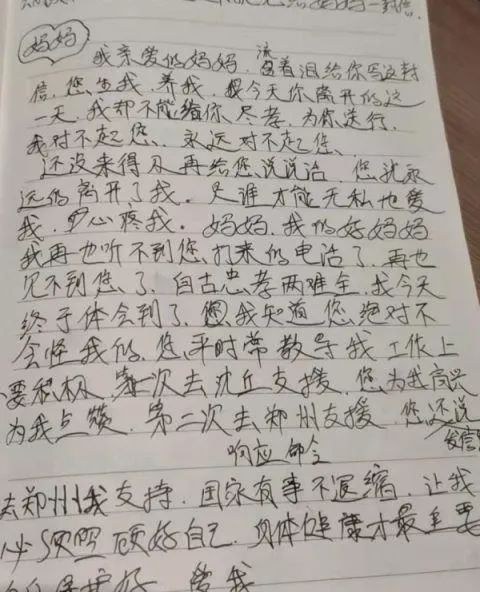 妈妈一封信.
妈妈
我亲爱的妈妈，流着泪给你写这封
信，您生我，养我，今天你离开的这
一天，我却不能给你尽孝，为你送行，
我对不起您，永远对不起您、
还没来得及再给您说说话 您就永
远的离开了我。又谁才能无私地爱
我，心疼我。妈妈，我的好妈妈
我再也听不到您，打来的电话了，再也
见不到您了，自古忠孝两难全，我今天
终于体会到了，我知道您，绝对不
会怪我的，您，平时常教导我工作上
要积极，第一次去沈丘支援，您为我高兴
为我点赞，第二次去郑州支援，您还说
发信息
响应命令
去郑州我支持，国家有事不退缩，让我
必须照顾好自己，身体健康才最重要
保护好 爱我